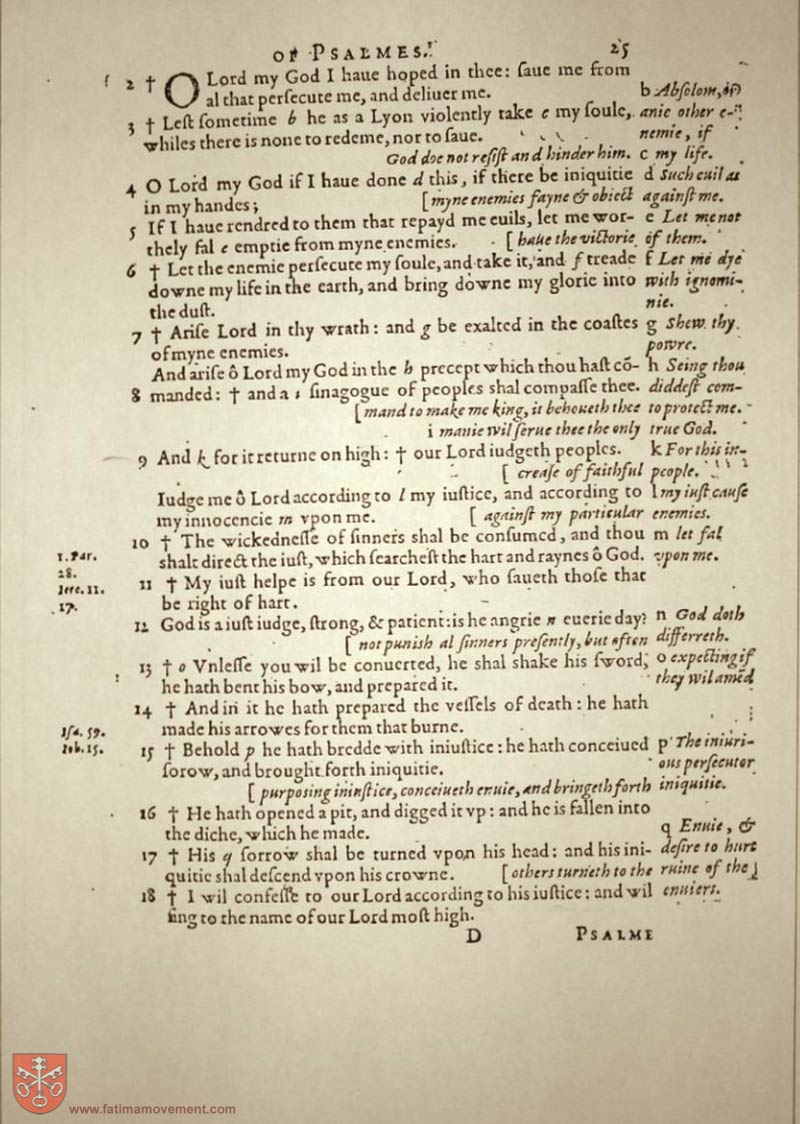 OF PSALMES. 25
2 † O Lord my God I haue hoped in thee: ſaue me from
al that perſecute me, and deliuer me.
b Abſolom, or
3 † Left ſometime b he as a Lyon violently take c my ſoule,
anie other e-
whiles there is none to redeme, nor to ſaue.
nemie, if
God doe not reſiſt and hinder him. c my life.
4 O Lord my God if I haue done d this, if there be iniquitie
d Such euil as
in my handes; [myne enemies fayne & obiect againſt me.
5 If I haue rendred to them that repayd me euils, let me wor-
e Let me not
thely fal e emptie from myne enemies. [haue the victorie of them.
6 † Let the enemie perſecute my ſoule, and take it, and f treade
f Let me dye
downe my life in the earth, and bring downe my glorie into
with ignomi-
the duſt.
nie.
7 † Ariſe Lord in thy wrath: and g be exalted in the coaſtes
g Shew thy
of myne enemies.
powre.
And ariſe ô Lord my God in the h precept which thou haſt cō-
h Seing thou
8 manded: † and a i ſinagogue of peoples shal compaſſe thee.
diddeſt com-
[mand to make me king, it behoueth thee to protect me.
i manie wil ſerue thee the only true God.
9 And k for it returne on high: † our Lord iudgeth peoples.
k For this in-
[creaſe of faithful people.
Iudge me ô Lord according to l my iuſtice, and according to
l my iuſt cauſe
my innocencie m vpon me. [againſt my particular enemies.
10 † The wickedneſſe of ſinners shal be conſumed, and thou
m let fal
1. Par.
28.
shalt direct the iuſt, which ſearcheſt the hart and raynes ô God.
vpon me.
Iere. 11.
17.
11 † My iuſt helpe is from our Lord, who ſaueth thoſe that
be right of hart.
12 God is a iuſt iudge, ſtrong, & patient: is he angrie n euerie day?
n God doth
[not punish al ſinners preſently, but often differreth.
13 † o Vnleſſe you wil be conuerted, he shal shake his ſword;
o expecting if
he hath bent his bow, and prepared it.
they wil amēd
14 † And in it he hath prepared the veſſels of death: he hath
made his arrowes for them that burne.
Iſa. 59.
Iob. 15.
15 † Behold p he hath bredde with iniuſtice: he hath conceiued
p The iniuri-
ſorow, and brought forth iniquitie.
ous perſecutor
[purpoſing iniuſtice, conceiueth enuie, and bringeth forth iniquitie.
16 † He hath opened a pit, and digged it vp: and he is fallen into
the diche, which he made.
q Enuie, &
17 † His q ſorrow shal be turned vpon his head: and his ini-
deſire to hurt
quitie shal deſcend vpon his crowne. [others turneth to the ruine of the
18 † I wil confeſſe to our Lord according to his iuſtice: and wil
enuiers.
ſing to the name of our Lord moſt high.
D PSALME
www.fatimamovement.com